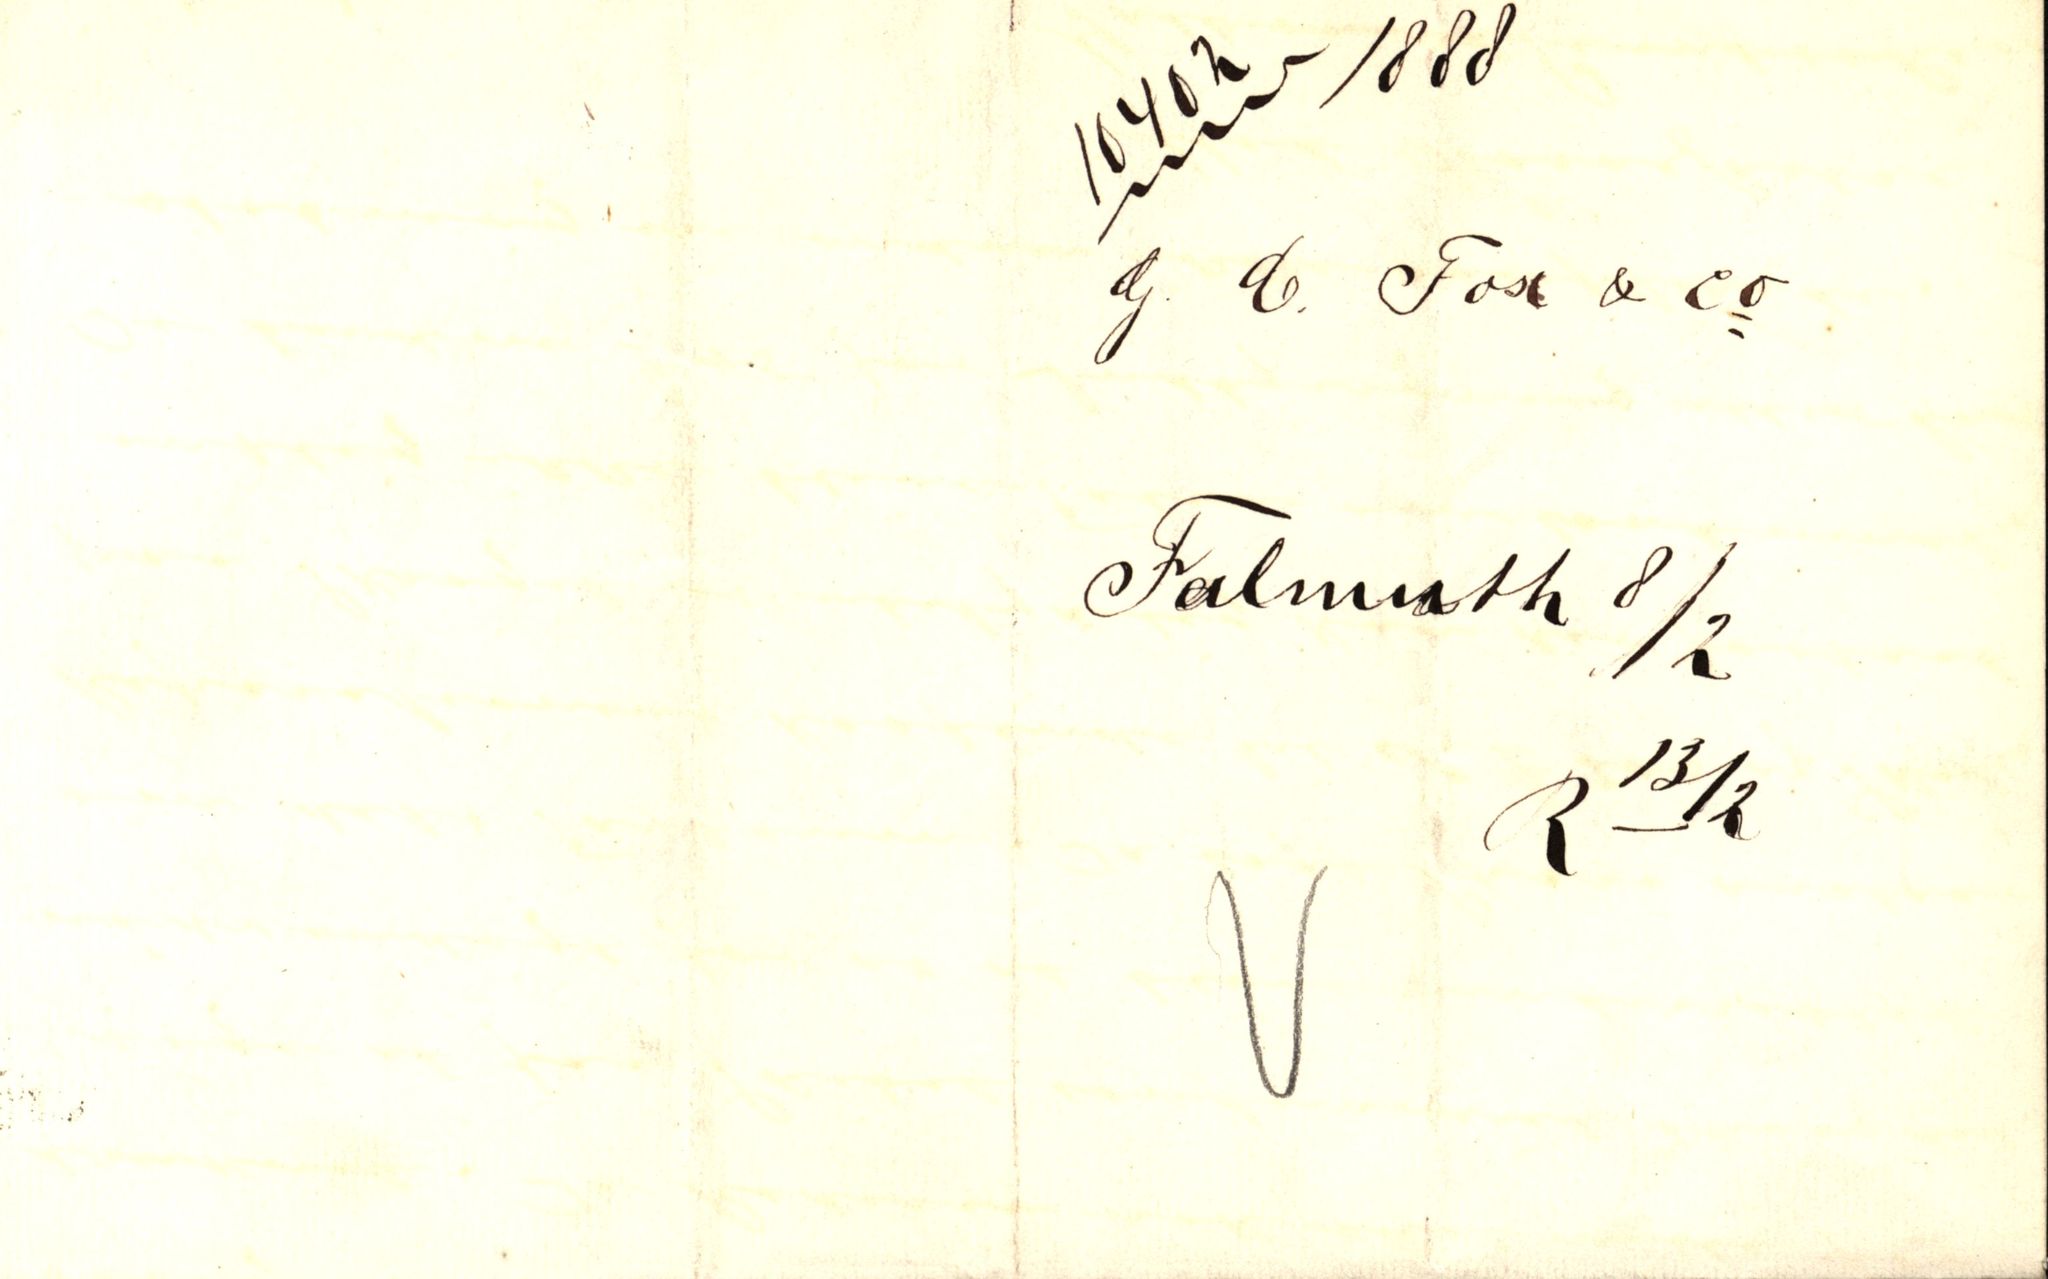 10402 1888
G. C. Fox & Co
Falmuth 8/2
R 13/2